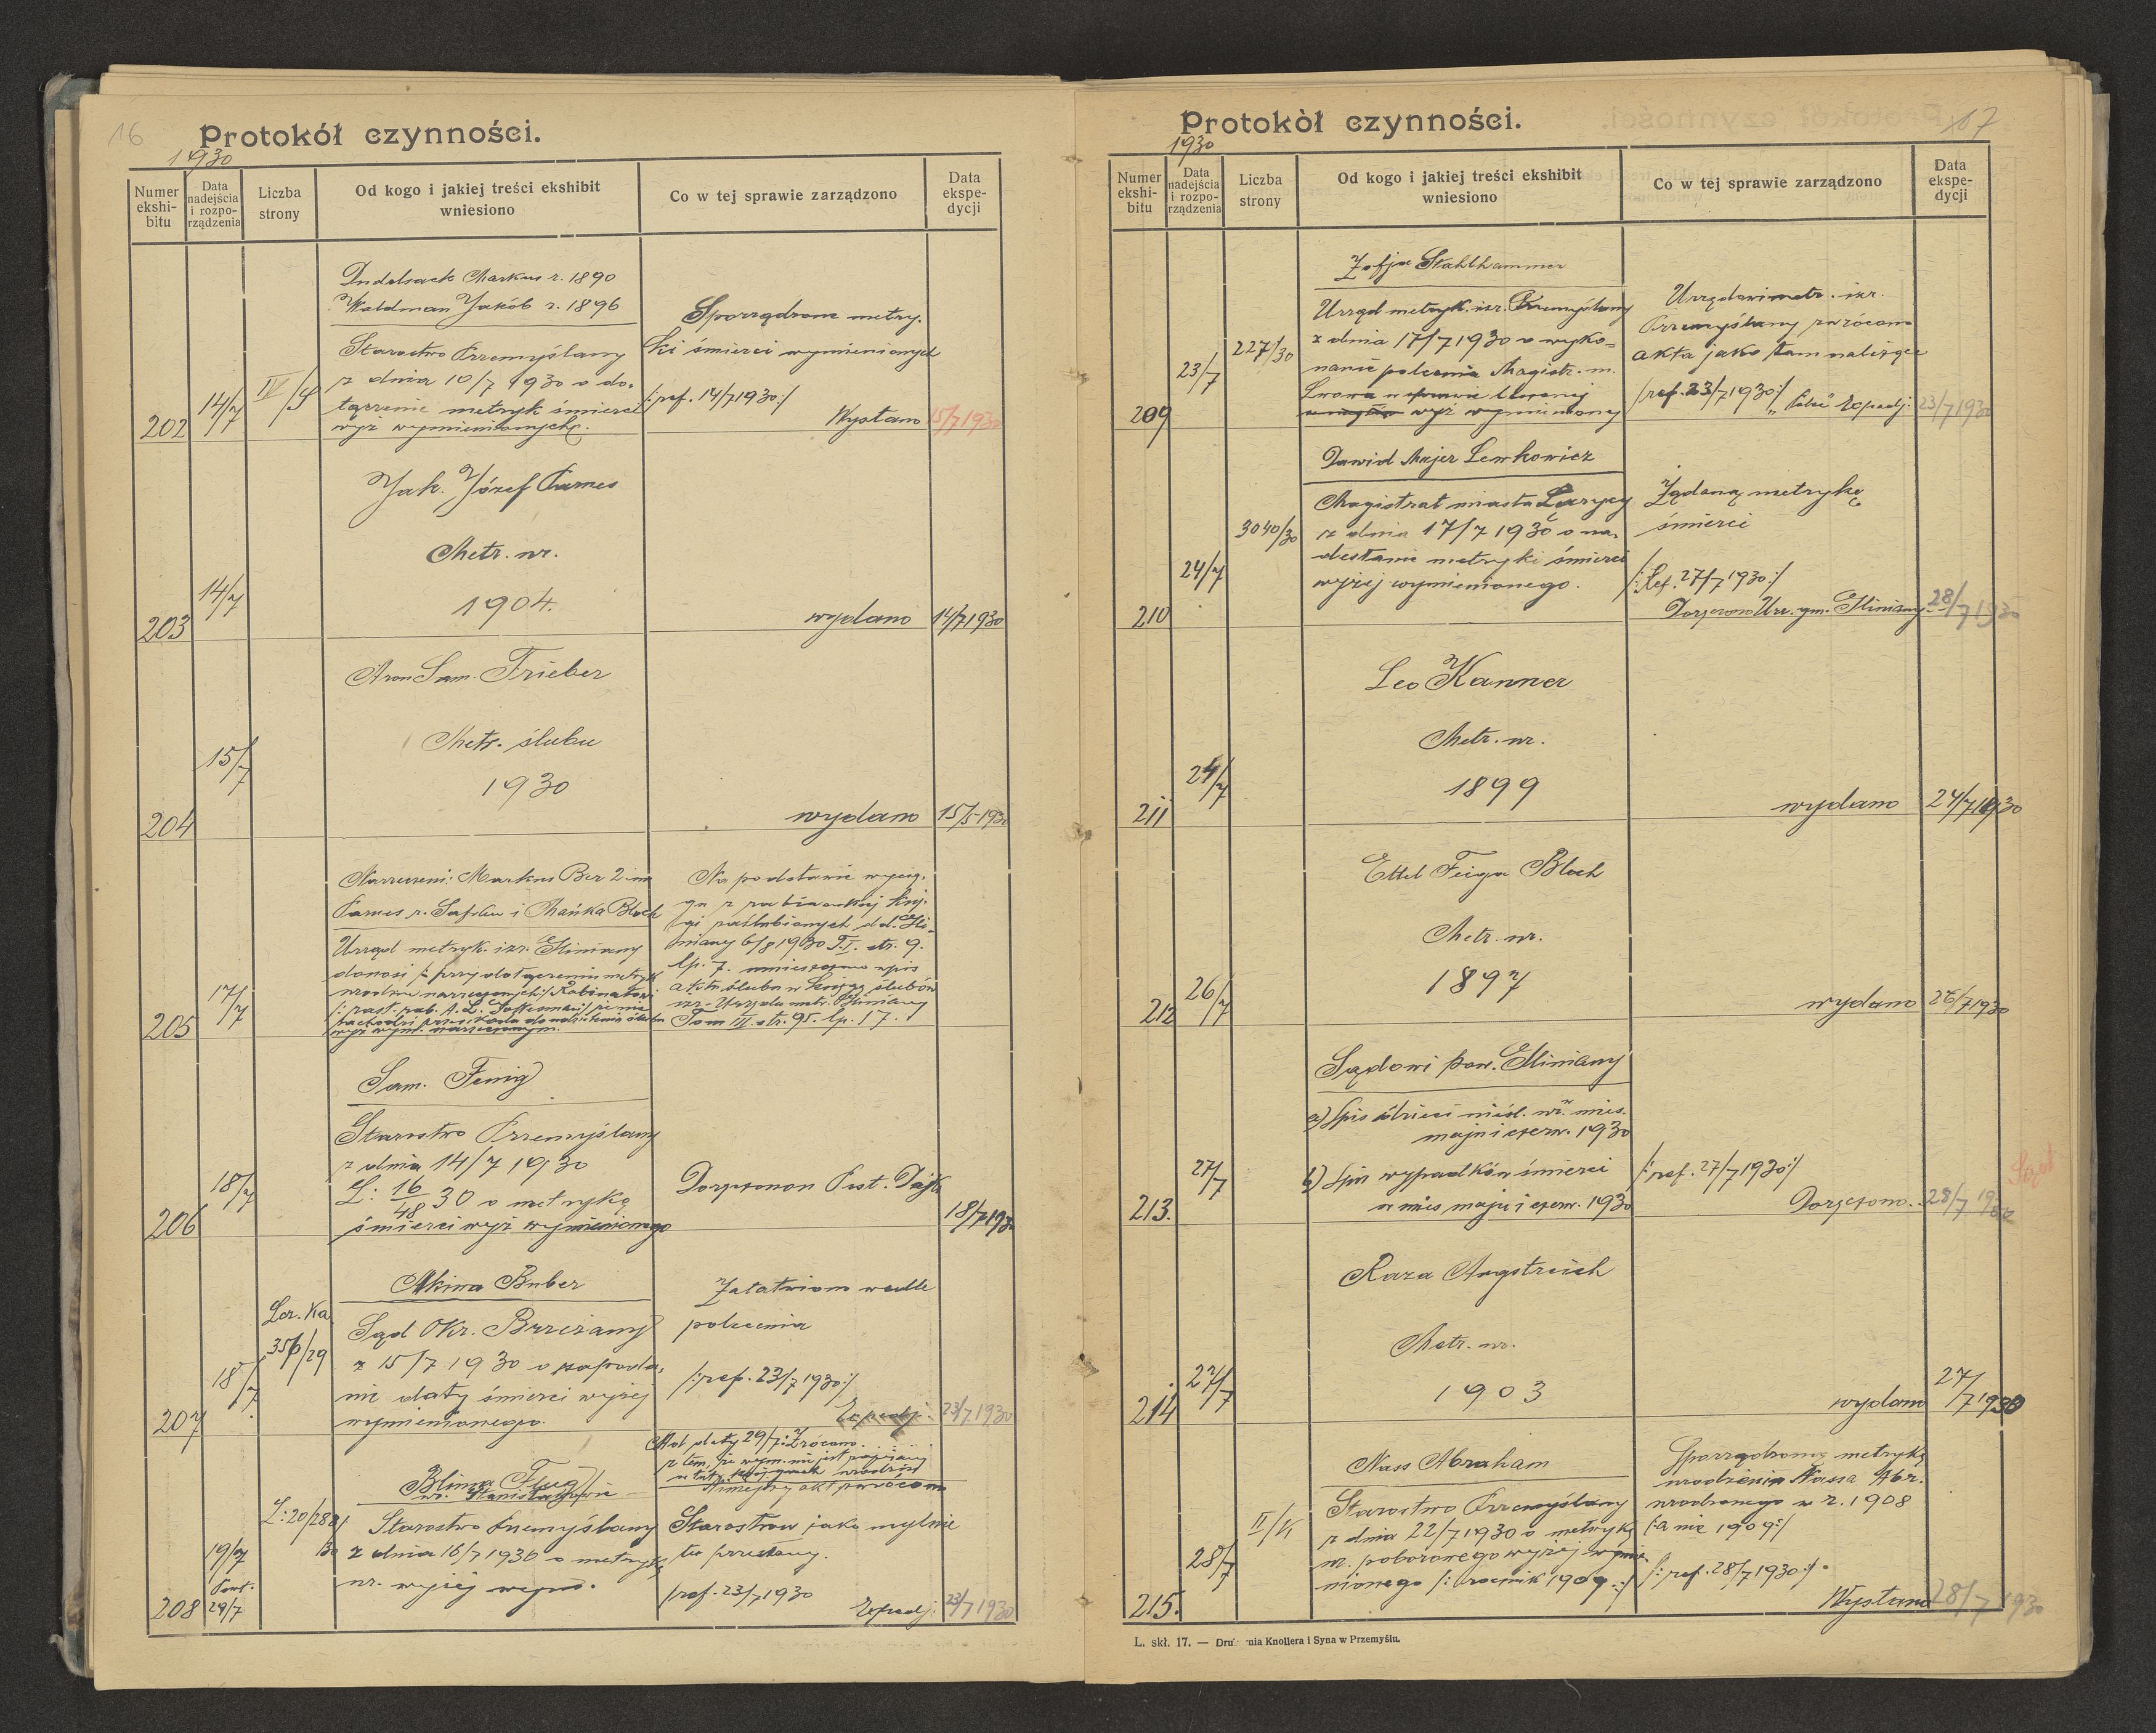 16
Protokół czynności.
1930
Numer ekshi-bitu
Data nadejścia i rozpo-rządzenia
Liczba strony
Od kogo i jakiej treści ekshibit wniesiono
Co w tej sprawie zarządzono
Data ekspe-dycji
Markus r. 1890
Waldman Jakób r. 1896
Starostwo Przemyślany
z dnia 10/7 1930 o do-
łączenie metryk śmierci
wyż wymienionych.
202
14/7
Sporządzone metry-
ki śmierci wymienionych
/:ref. 14/7 1930:/
Wysłano
15/7 1930
Jak. Józef Parnes
Metr. ur.
1904.
203
14/7
wydano
14/7 1930
Aron Sam. Frieber
Metr. ślubu
1930
204
15/7
wydano
Narzeczeni: Markus Ber 2 im
Parnes i Bloch
Urząd metryk. izr. Gliniany
donosi /: przy dołączeniu metryk
narzeczonych:/
205
17/7
Na podstawie wycią-
gu z
gi zaślubionych dd. Gli-
niany 6/8 1930 T.I. str. 9.
lp. 7. wpis
aktu ślubu w księgę ślubów
izr. Urzędu metr. Gliniany
Tom III. str. 95. lp. 17.
Sam. Fenig
Starostwo Przemyślany
z dnia 14/7 1930
L: 16/48 30 o metrykę
śmierci wyż wymienionego
206
18/7
Doręczono Post.
18/7 1930
Akiwa Buber
Sąd Okr. Brzeżany
z 15/7 1930 o zapoda-
nie daty śmierci wyżej
wymienionego.
207
18/7
Załatwiono wedle
polecenia
/:ref. 23/7 1930:/
Expedj.
23/7 1930
Blima
Starostwo Przemyślany
z dnia 16/7 1930 o metrykę
ur. wyżej wym.
208
19/7
29/7
Ad daty 29/7: Zwrócono
z tem, że wym. nie jest
Starostwu jako mylnie
tu przesłany.
/ref. 23/7 1930
Expedj.
23/7 1930
17
Protokòł czynności.
1930
Numer ekshi-bitu
Data nadejścia i rozpo-rządzenia
Liczba strony
Od kogo i jakiej treści ekshibit wniesiono
Co w tej sprawie zarządzono
Data ekspe-dycji
Zofja Stahlhammer
Urząd metryk. izr. Przemyślany
z dnia 17/7 1930 o wyko-
nanie polecenia Magistr. m.
Lwowa w sprawie
wyż wymienionej
209
23/7
227/30
Urzędowi metr. izr.
Przemyślany zwrócono
akta jako tam należące
/ref. 23/7 1930:/
Expedj.
23/7 1930
Dawid Majer Lewkowicz
Magistrat miasta
z dnia 17/7 1930 o na-
desłanie metryki śmierci
wyżej wymienionego.
210
24/7
3040/30
Żądaną metrykę
śmierci
/:Ref. 27/7 1930:/
Doręczono Urz. gm. Gliniany
28/7 1930
Leo Kanner
Metr. ur.
1899
211
24/7
wydano
24/7 1930
Ettel Feiga Bloch
Metr. ur.
1897
212
26/7
wydano
26/7 1930
Sądowi pow. Gliniany
a) Spis dzieci nieśl. ur. w mies.
maju i czerw. 1930
b) Spis wypadków śmierci
w mies maju i czerw. 1930
213.
27/7
/:ref. 27/7 1930:/
Doręczono.
28/7 1930
Roza Angstreich
Metr. ur.
1903
214
27/7
wydano
27/7 1930
Nass Abraham
Starostwo Przemyślany
z dnia 22/7 1930 o metrykę
ur. poborowego wyżej wymie-
nionego /: rocznik 1909:/
215.
28/7
Sporządzoną metrykę
urodzenia Nassa Abr.
urodzonego w r. 1908
/:a nie 1909:/
/:ref. 28/7 1930:/.
Wysłano
28/7 1930
L. skł. 17. — Dru nia Knollera i Syna w Przemyślu.